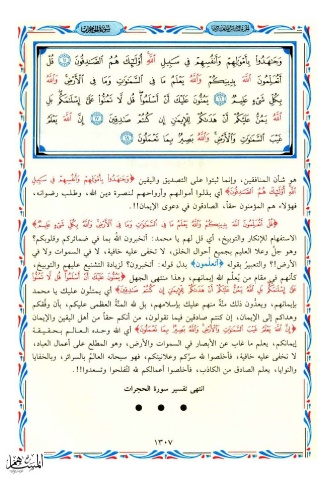 وَجَٰهَدُوا۟ بِأَمْوَٰلِهِمْ وَأَنفُسِهِمْ فِى سَبِيلِ ٱللَّهِ أُو۟لَٰٓئِكَ هُمُ ٱلصَّٰدِقُونَ ١٥ قُلْ
أَتُعَلِّمُونَ ٱللَّهَ بِدِينِكُمْ وَٱللَّهُ يَعْلَمُ مَا فِى ٱلسَّمَٰوَٰتِ وَمَا فِى ٱلْأَرْضِ وَٱللَّهُ
بِكُلِّ شَىْءٍ عَلِيمٌ ١٦ يَمُنُّونَ عَلَيْكَ أَنْ أَسْلَمُوا۟ قُل لَّا تَمُنُّوا۟ عَلَىَّ إِسْلَٰمَكُم بَلِ
ٱللَّهُ يَمُنُّ عَلَيْكُمْ أَنْ هَدَىٰكُمْ لِلْإِيمَٰنِ إِن كُنتُمْ صَٰدِقِينَ ١٧ إِنَّ ٱللَّهَ يَعْلَمُ
غَيْبَ ٱلسَّمَٰوَٰتِ وَٱلْأَرْضِ وَٱللَّهُ بَصِيرٌۢ بِمَا تَعْمَلُونَ ١٨
هو شأن المنافقين، وإنما ثبتوا على التصديق واليقين ﴿وَجَٰهَدُوا۟ بِأَمْوَٰلِهِمْ وَأَنفُسِهِمْ فِى سَبِيلِ
ٱللَّهِ أُو۟لَٰٓئِكَ هُمُ ٱلصَّٰدِقُونَ﴾ أي بذلوا أموالهم وأرواحهم لنصرة دين الله، وطلب رضوانه،
فهؤلاء هم المؤمنون حقاً، الصادقون في دعوى الإيمان!!.
﴿قُلْ أَتُعَلِّمُونَ ٱللَّهَ بِدِينِكُمْ وَٱللَّهُ يَعْلَمُ مَا فِى ٱلسَّمَٰوَٰتِ وَمَا فِى ٱلْأَرْضِ وَٱللَّهُ بِكُلِّ شَىْءٍ عَلِيمٌ﴾
الاستفهام للإنكار والتوبيخ، أي قل لهم يا محمد: أتخبرون الله بما في ضمائركم وقلوبكم؟
وهو جلَّ وعلا العليم بجميع أحوال الخلق، لا تخفى عليه خافية، لا في السموات ولا في
الأرض!؟ والتعبير بقوله ﴿أتعلمون﴾ بدل قوله: أتخبرون؟ لزيادة التشنيع عليهم والتوبيخ،
كأنهم في مقام من يُعلِّم الله إيمانهم، وهذا منتهى الجهل ﴿يَمُنُّونَ عَلَيْكَ أَنْ أَسْلَمُوا۟ قُل لَّا تَمُنُّوا۟
عَلَىَّ إِسْلَٰمَكُم بَلِ ٱللَّهُ يَمُنُّ عَلَيْكُمْ أَنْ هَدَىٰكُمْ لِلْإِيمَٰنِ إِن كُنتُمْ صَٰدِقِينَ﴾ أي يمتنُّون عليك يا محمد
بإيمانهم، ويعدُّون ذلك منَّة منهم عليك بإسلامهم، بل لله المنَّة العظمى عليكم، بأن وفَّقكم
وهداكم إلى الإيمان، إن كنتم صادقين فيما تقولون، من أنكم حقاً من أهل اليقين والإيمان
﴿إِنَّ ٱللَّهَ يَعْلَمُ غَيْبَ ٱلسَّمَٰوَٰتِ وَٱلْأَرْضِ وَٱللَّهُ بَصِيرٌۢ بِمَا تَعْمَلُونَ﴾ أي الله وحده العالم بحقيقة
إيمانكم، يعلم ما غاب عن الأبصار في السموات والأرض، وهو المطلع على أعمال العباد،
لا تخفى عليه خافية، فأخلصوا لله سرَّكم وعلانيتكم، فهو سبحانه العالمُ بالسرائر، وبالخفايا
والنوايا، يعلم الصادق من الكاذب، فأخلصوا أعمالكم لله لتفلحوا وتسعدوا!!.
انتهى تفسير سورة الحجرات
١٣٠٧